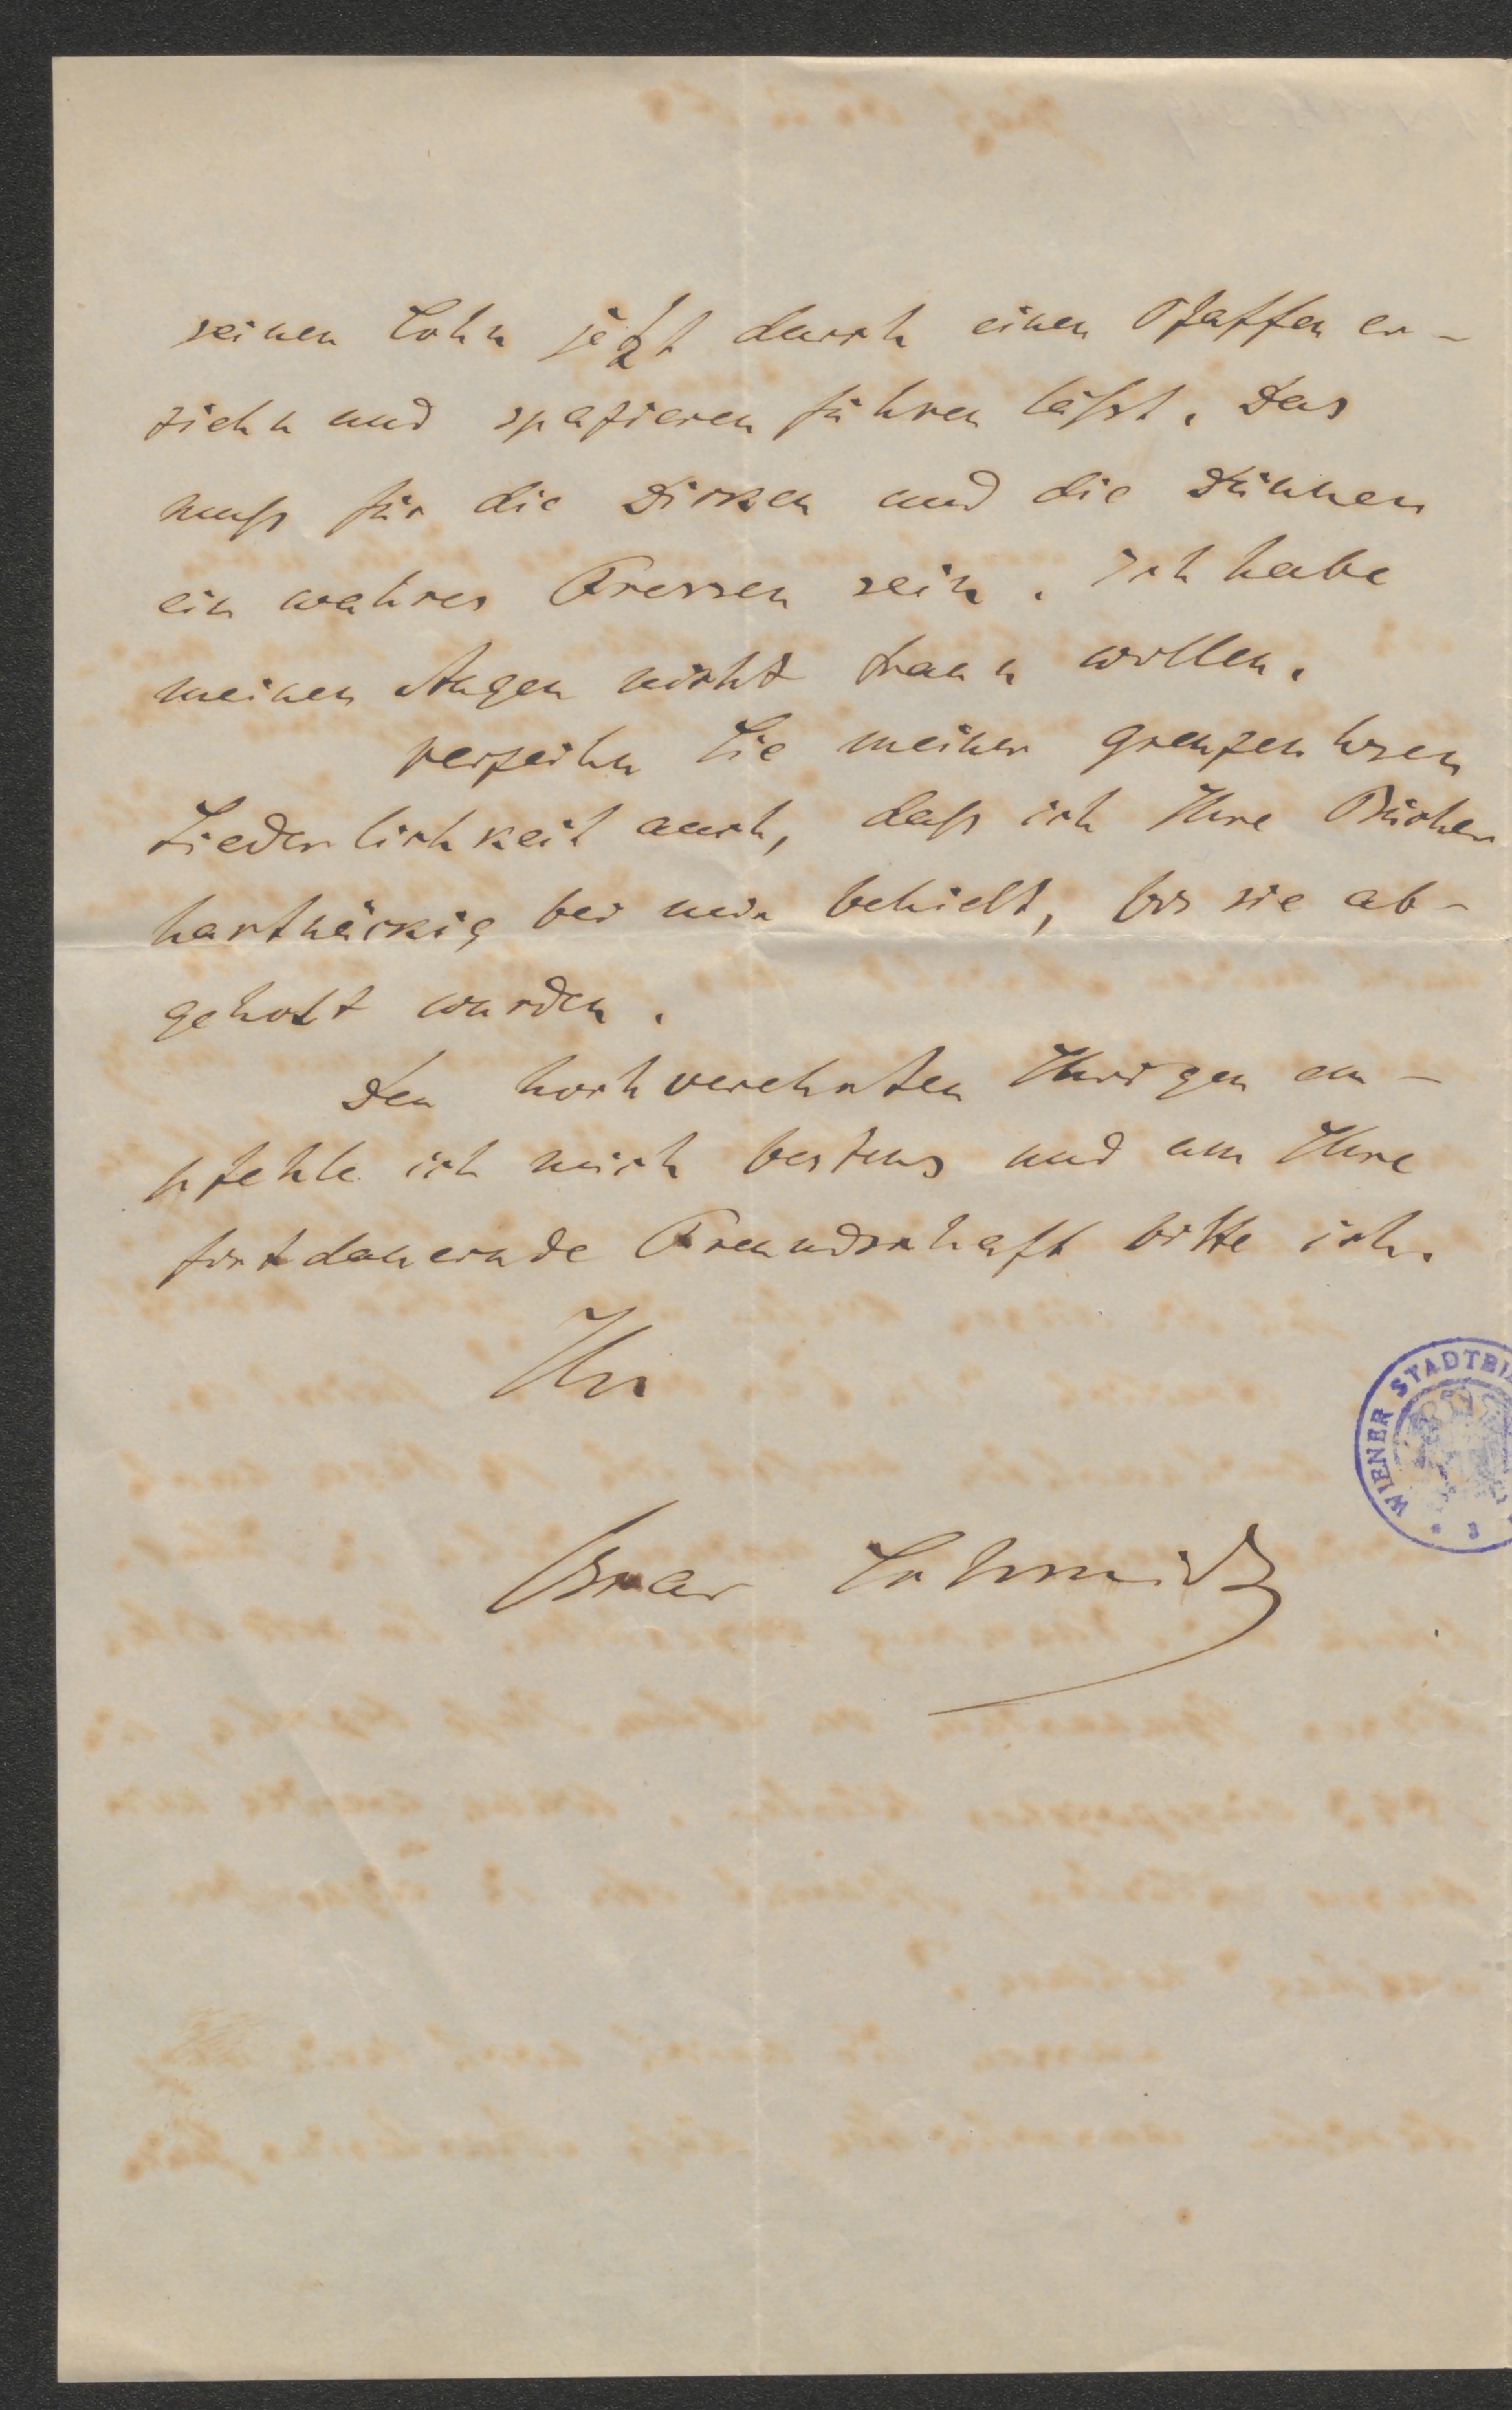 seinen Sohn jetzt durch einen Pfaffen er-
ziehn und spazieren führen läßt. Das
muß für die Dicken und die Dünnen
ein wahres Fressen sein. Ich habe
meinen Augen nicht traun wollen.
Verzeihn Sie meiner grenzenlosen
Liederlichkeit auch, daß ich Ihre Bücher
hartnäckig bei mir behielt, bis sie ab-
geholt wurden.
Den hochverehrten Ihrigen em-
pfehle ich mich bestens und um Ihre
fortdauernde Freundschaft bitte ich.
Ihr
Oscar Schmidt
WIENER STADTBI
3